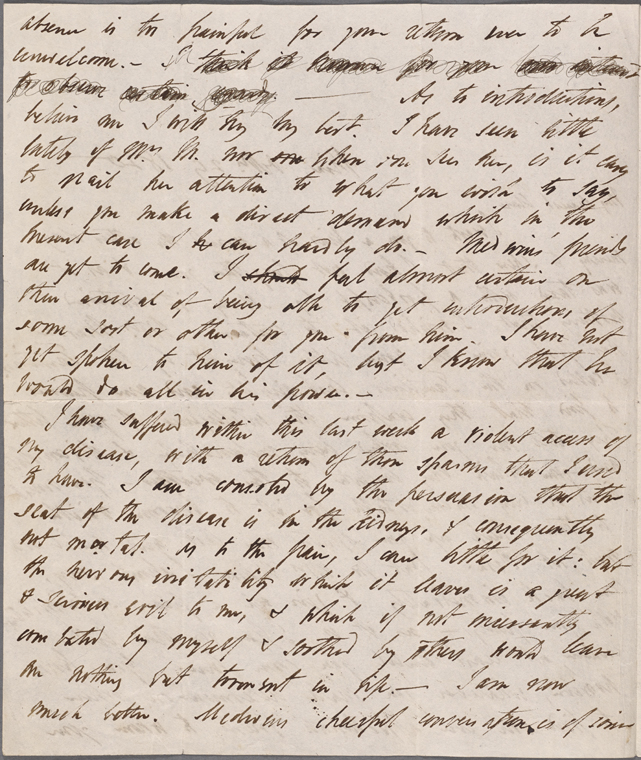 absence is too painful for your return ever to be
unwelcome. — I think it
to observe certain
— As to introductions,
believe me I will try my best. I have seen little
lately of Mrs. M. nor when one sees her, is it easy
to nail her attention to what you wish to say,
unless you make a direct demand which in the
present case I can hardly do. — Medwins friends
are yet to come. I feel almost certain on
their arrival of being able to get introductions of
some sort or other for you from him. I have not
yet spoken to him of it, but I know that he
would do all in his power. —
I have suffered within this last week a violent access of
my disease, with a return of those spasms that I used
to have. I am consoled by the persuasion that the
seat of the disease is in the kidneys, & consequently
not mortal. As to the pain, I care little for it: but
the nervous irritability which it leaves is a great
& serious evil to me, & which if not incessantly
combated by myself & soothed by others would leave
me nothing but torment in life. — I am now
much better. Medwins cheerful conversation is of some